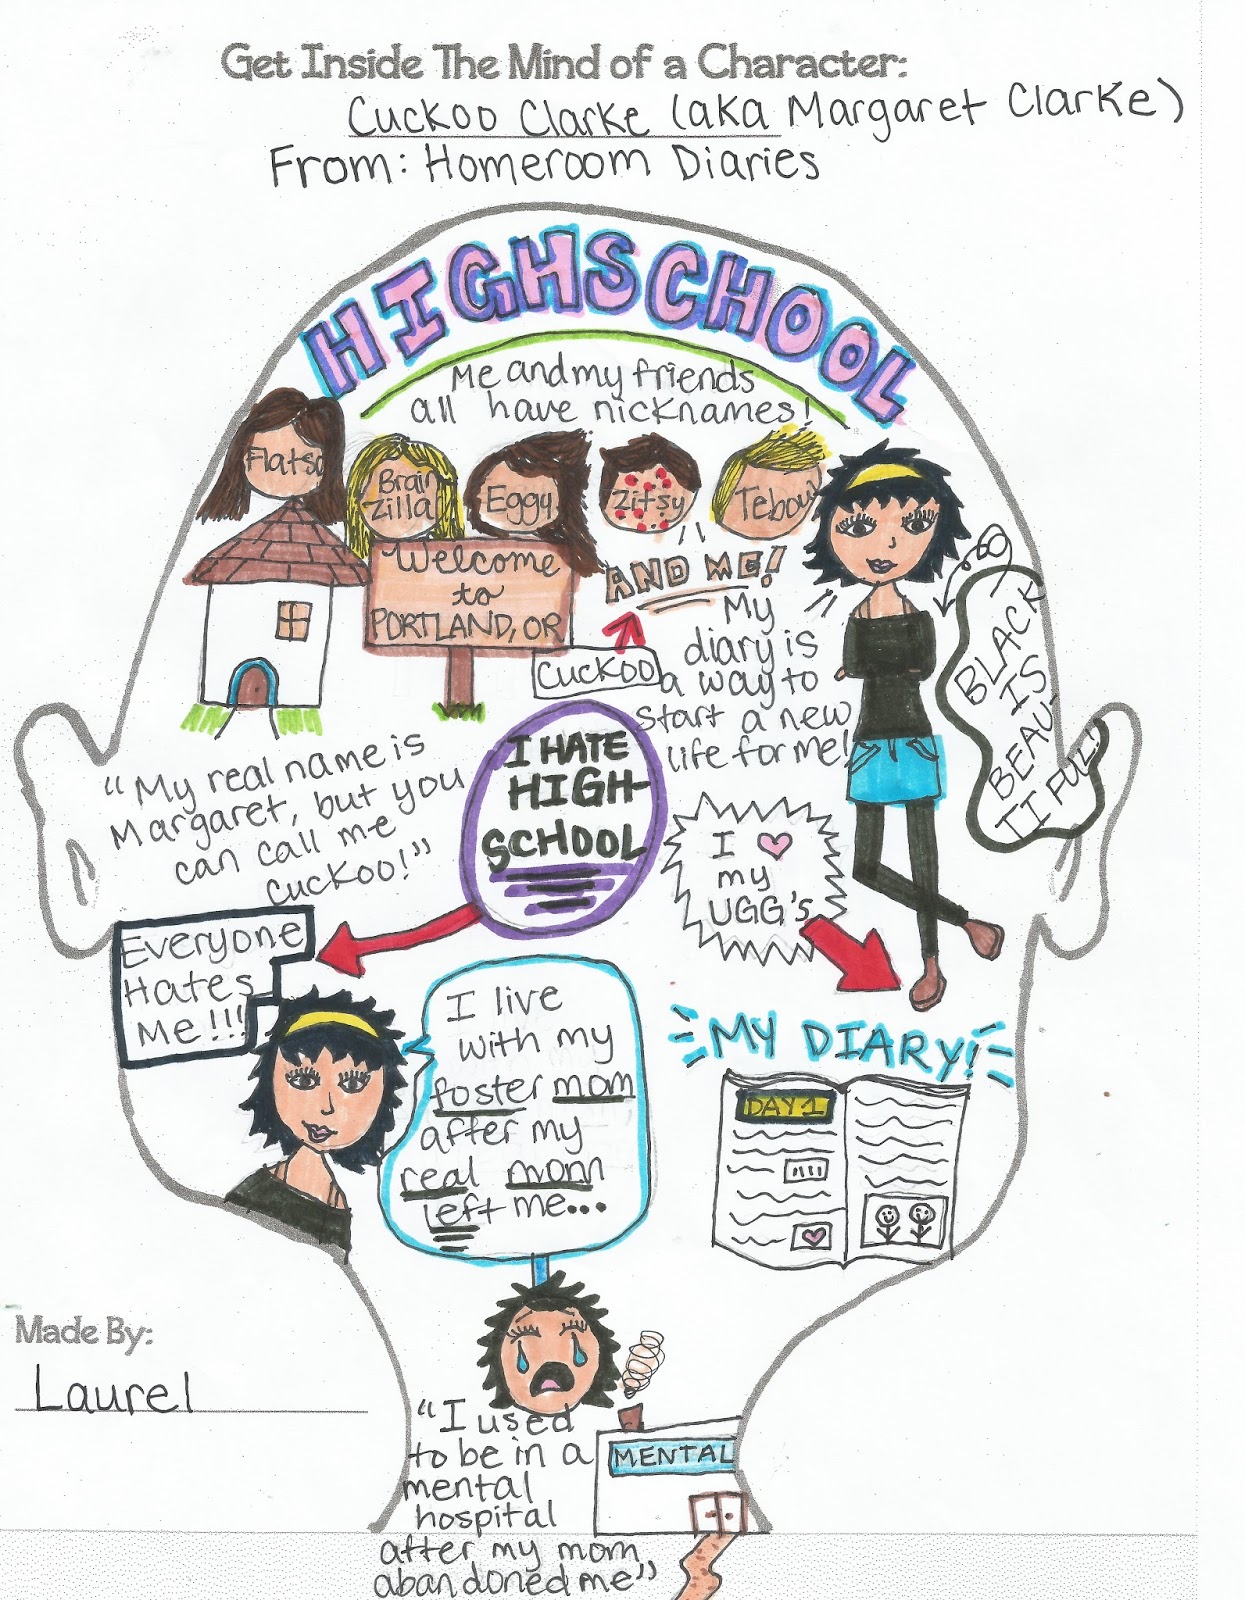 Get Inside The Mind of a Character:
Cuckoo Clarke (aka Margaret Clarke)
From: Homeroom Diaries
HIGHSCHOOL
Me and my friends
all have nicknames!
Flatso
Brain
Zilla
Eggy
Zitsy
Tebow
Welcome
to
PORTLAND, OR
AND ME!
CUCKOO
My
diary is
a way to
start a new
life for me!
BLACK
IS
BEAU-
TIFUL!
"My real name is
Margaret, but you
can call me
cuckoo!"
I HATE
HIGH-
SCHOOL
I ♥
my
UGG's
Everyone
Hates
Me!!!
I live
with my
foster mom
after my
real mom
left me...
MY DIARY!
DAY 1
Made By:
Laurel
"I used
to be in a
mental
hospital
after my mom
abandoned me"
MENTAL